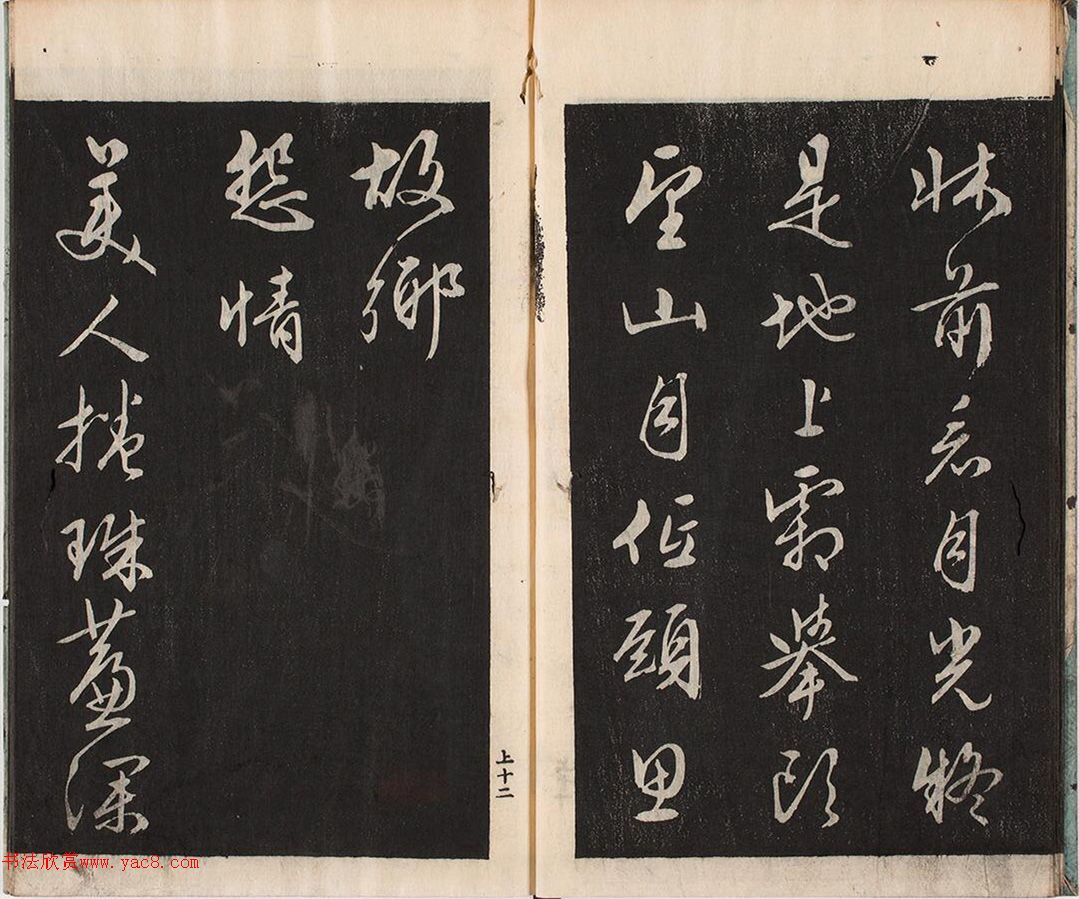 牀前看月光疑
是地上霜舉頭
望山月低頭思
故鄉
怨情
美人捲珠簾深
上十二
书法欣赏www.yac8.com